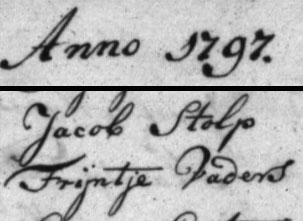 Anno 1797.
Jacob Stolp
Frijntje Vaders